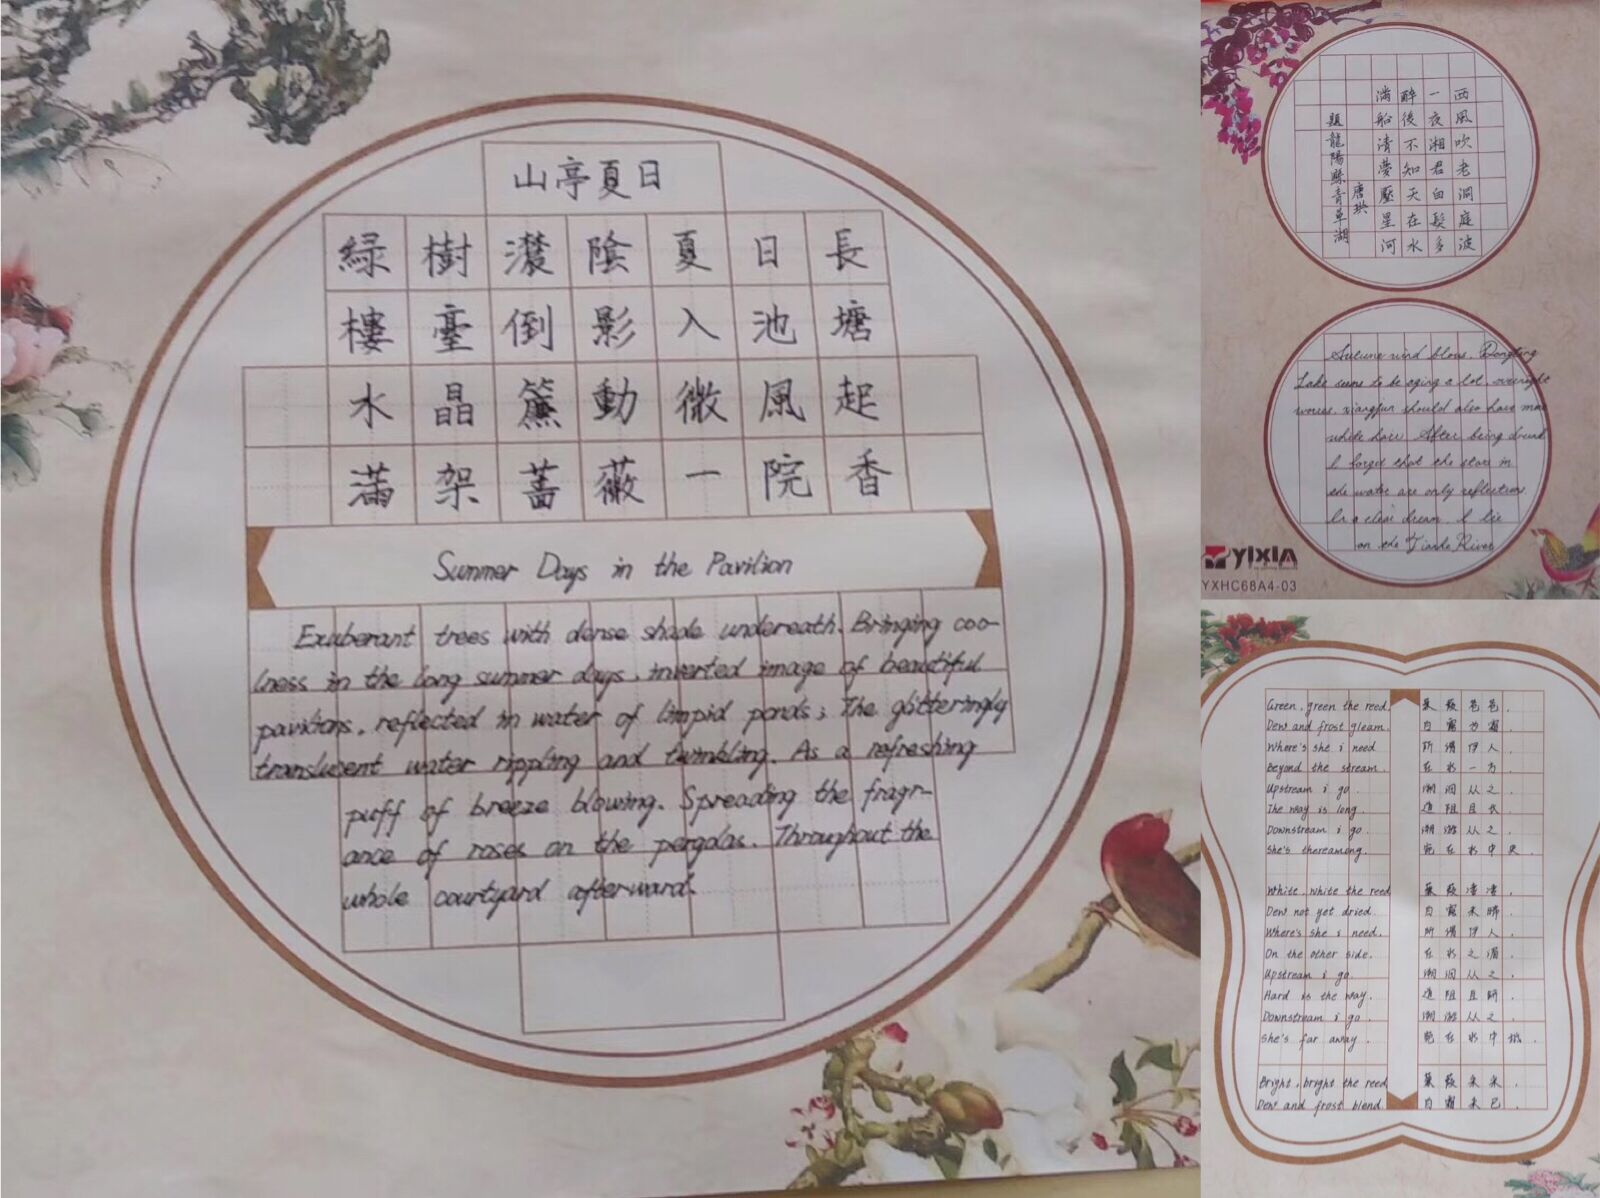 山亭夏日
綠樹濃陰夏日長
樓臺倒影入池塘
水晶簾動微風起
滿架薔薇一院香
Summer Days in the Pavilion
Exuberant trees with dense shade underneath. Bringing coo-
lness in the long summer days, inverted image of beautiful
pavilions, reflected in water of limpid ponds; The glitteringly
translucent water rippling and twinkling. As a refreshing
puff of breeze blowing. Spreading the fragr-
ance of roses on the pergolas. Throughout the
whole courtyard afterward.
西風吹老洞庭波
一夜湘君白髮多
醉後不知天在水
滿船清夢壓星河
唐珙
題龍陽縣青草湖
Autumn wind blows, Dongting
Lake seems to be aging a lot, overnight
worries, xiangfun should also have more
white hair. After being drunk
I forget that the stars in
the water are only reflection
In a clear dream, I lie
on the Tianhe River
YIXIN
YXHC68A4-03
Green, green the reed,
Dew and frost gleam.
Where's she i need
Beyond the stream.
Upstream i go
The way is long.
Downstream i go.
She's thereamong.
White, white the reed
Dew not yet dried.
Where's she i need,
On the other side.
Upstream i go
Hard is the way.
Downstream i go.
She's far away.
Bright, bright the reed
Dew and frost blend.
蒹葭苍苍,
白露为霜.
所谓伊人,
在水一方.
溯洄从之,
道阻且长
溯游从之,
宛在水中央.
蒹葭凄凄,
白露未晞.
所谓伊人,
在水之湄.
溯洄从之,
道阻且跻.
溯游从之,
宛在水中坻.
蒹葭采采,
白露未已.